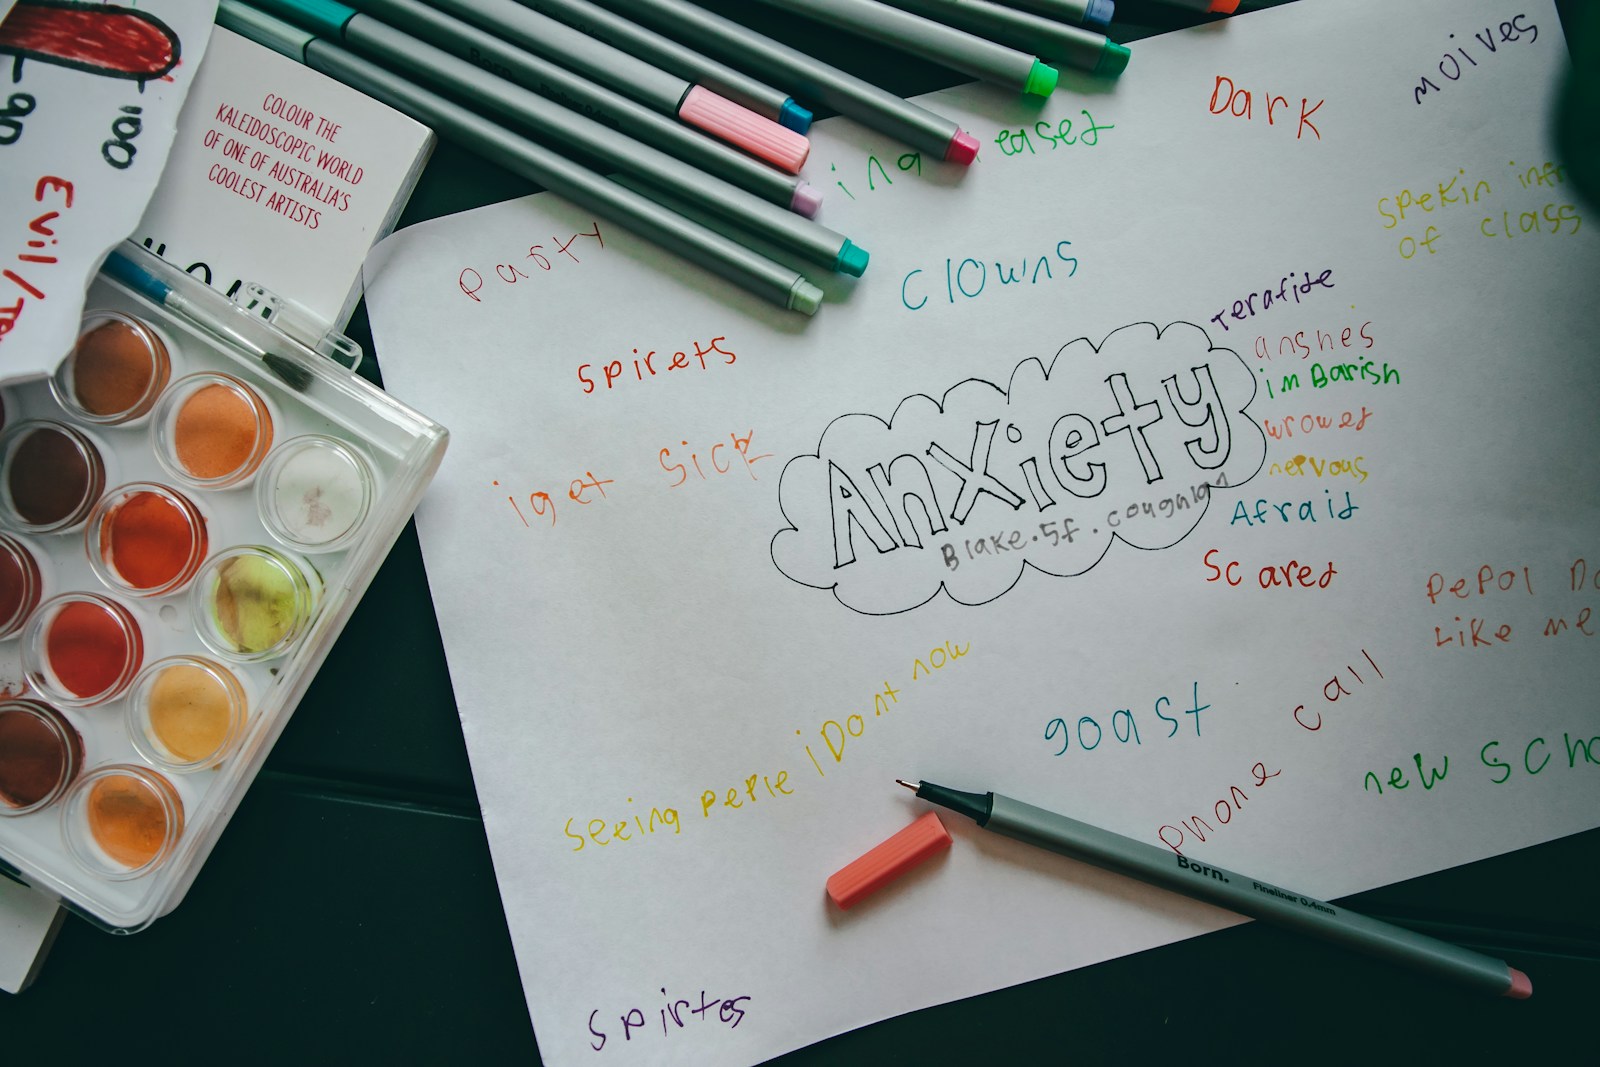 100
90
Evil/
COLOUR THE
KALEIDOSCOPIC WORLD
OF ONE OF AUSTRALIA'S
COOLEST ARTISTS
moives
Dark
ing
eased
spekin infr
of class
party
clowns
spirets
terafide
anshes
imBarish
wrowed
nervous
Afraid
Scared
iget sick
Anxiety
Blake.5f.coughlan
pepol Do
Like me
seeing peple iDont now
goast
phone call
new scho
Born. Fineliner 0,4mm
spirtes